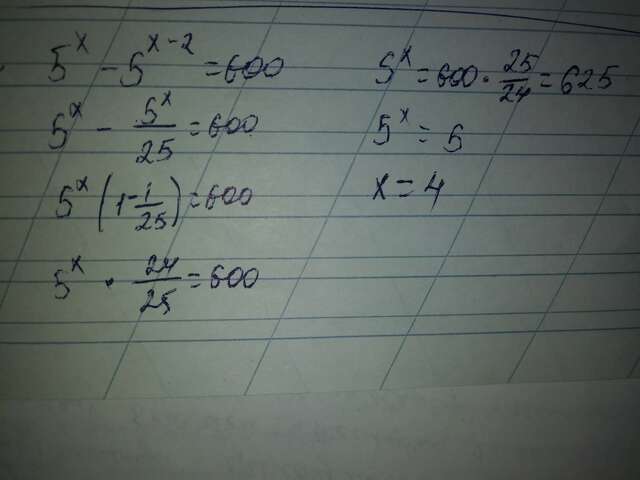 5^x - 5^{x-2} = 600
5^x - \frac{5^x}{25} = 600
5^x (1 - \frac{1}{25}) = 600
5^x \cdot \frac{24}{25} = 600
5^x = 600 \cdot \frac{25}{24} = 625
5^x = 5
x = 4